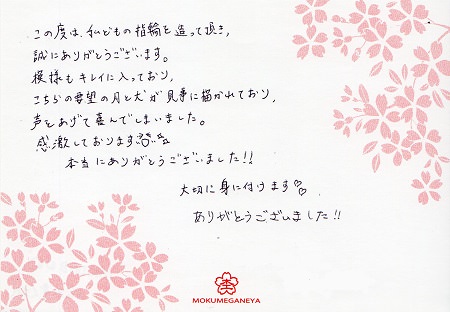 この度は、私どもの指輪を造って頂き、
誠にありがとうございます。
模様もキレイに入っており、
こちらの要望の月と犬が見事に描かれており、
声をあげて喜んでしまいました。
感激しております
本当にありがとうございました!!
大切に身に付けます♡
ありがとうございました!!
MOKUMEGANEYA